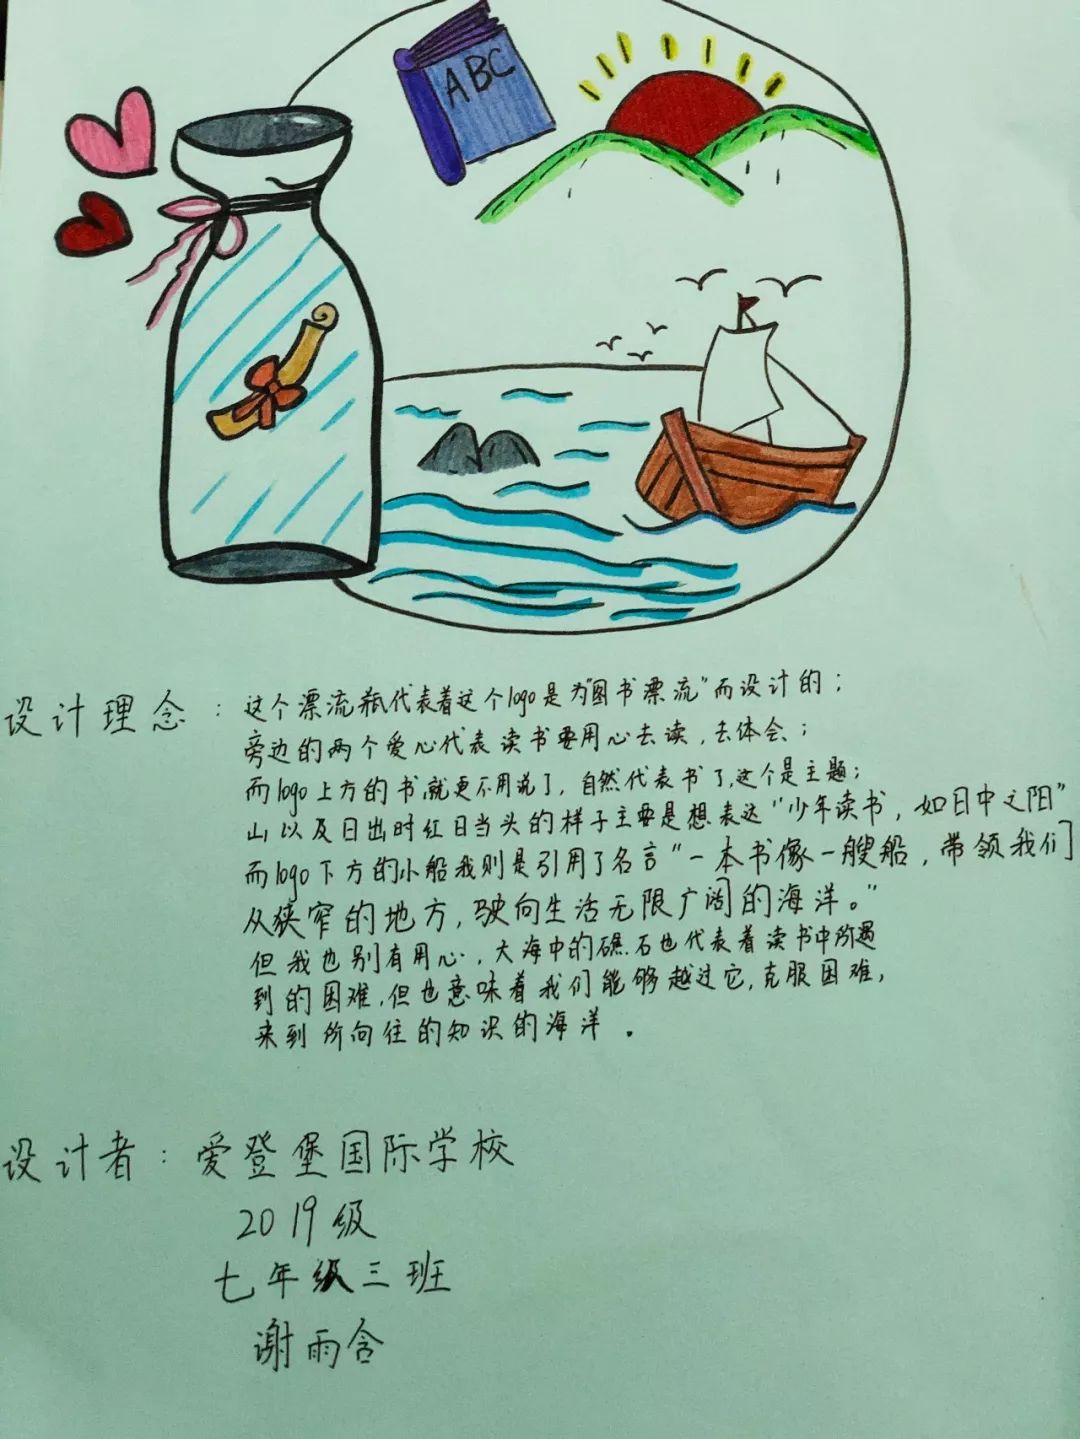 ABC
设计理念：这个漂流瓶代表着这个logo是为"图书漂流"而设计的；
旁边的两个爱心代表读书要用心去读，去体会；
而logo上方的书就更不用说了，自然代表书了，这个是主题；
山以及日出时红日当头的样子主要是想表达"少年读书，如日中之阳"
而logo下方的小船我则是引用了名言"一本书像一艘船，带领我们
从狭窄的地方，驶向生活无限广阔的海洋。"
但我也别有用心，大海中的礁石也代表着读书中所遇
到的困难，但也意味着我们能够越过它，克服困难，
来到所向往的知识的海洋。
设计者：爱登堡国际学校
2019级
七年级三班
谢雨含